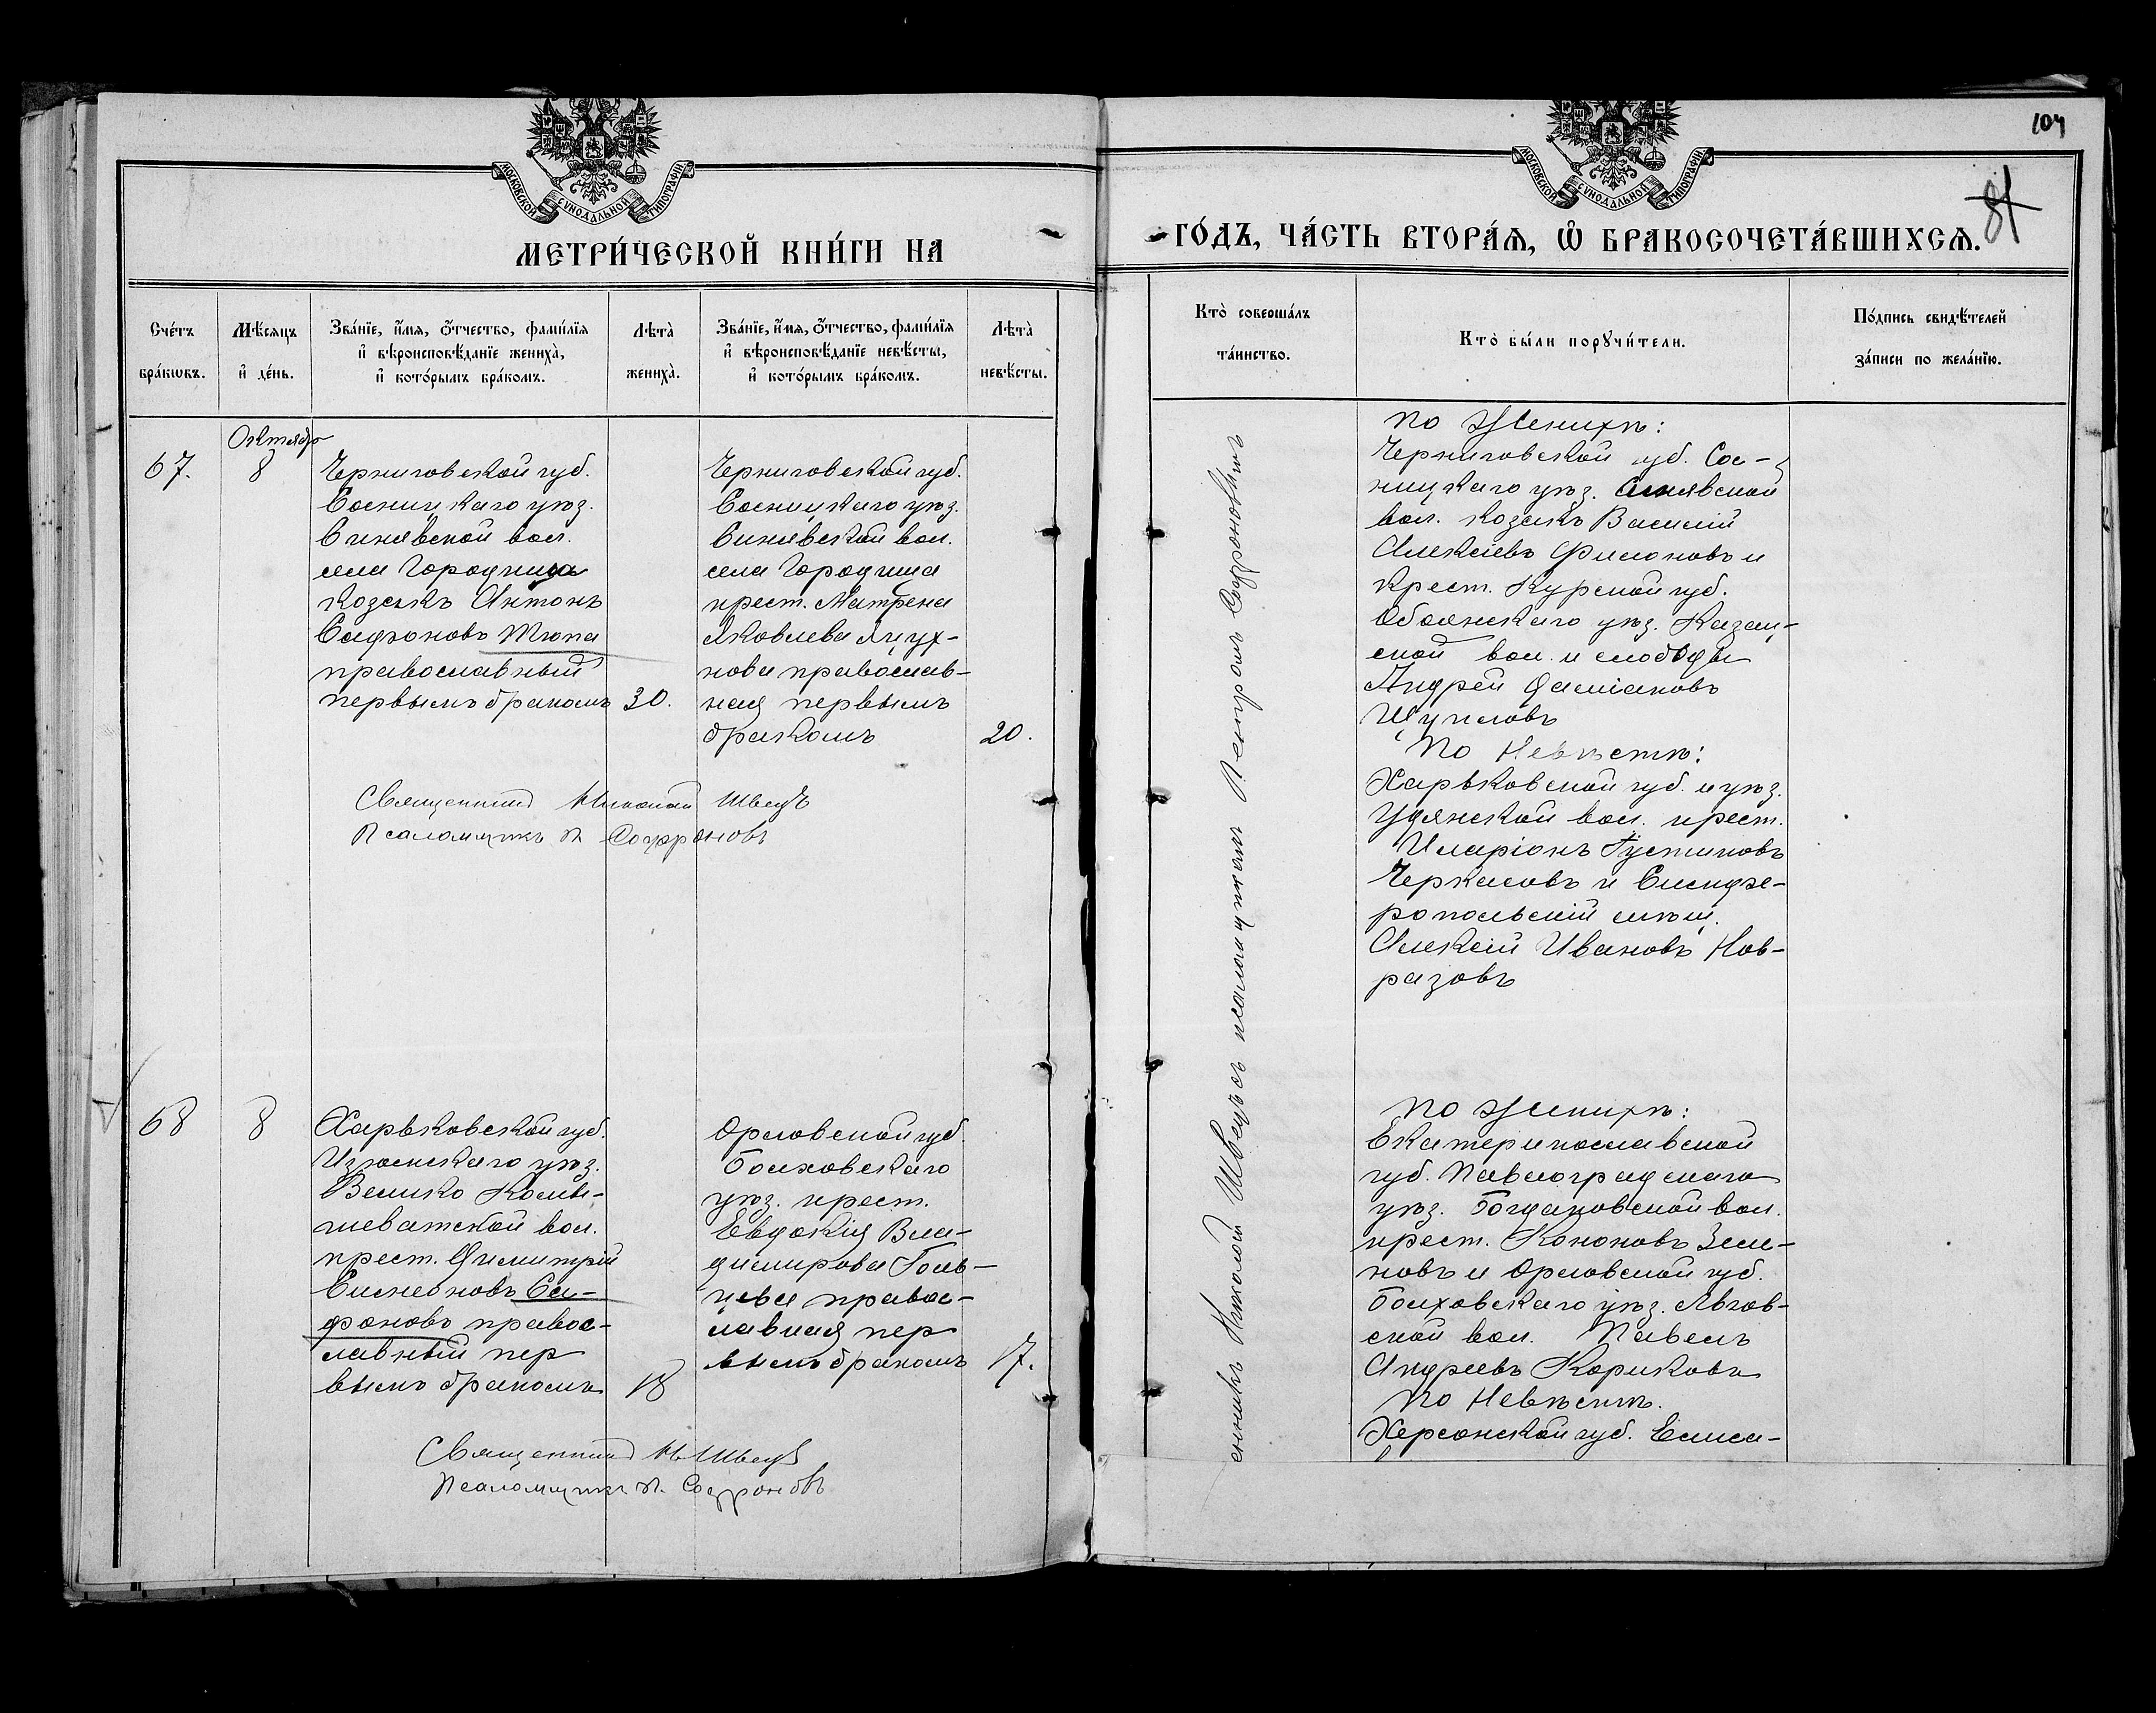 104
81
МОСКОВСКОЙ СѴНОДАЛЬНОЙ ТИПОГРАФІИ
МОСКОВСКОЙ СѴНОДАЛЬНОЙ ТИПОГРАФІИ
МЕТРИ́ЧЕСКОЙ КНИ́ГИ НА
ГО́ДЪ, ЧА́СТЬ ВТОРА́Ѧ, Ѽ БРАКОСОЧЕТА́ВШИХСѦ.
Сче́тъ бра́кѡвъ.
Мѣ́сяцъ и҆ де́нь.
Зва́нїе, и҆́мя, ѻ҆́тчество, фами́лїя
и҆ вѣроисповѣ́данїе жениха̀,
и҆ кото́рымъ бра́комъ.
Лѣта̀ жениха̀.
Зва́нїе, и҆́мя, ѻ҆́тчество, фами́лїя
и҆ вѣроисповѣ́данїе невѣ́сты,
и҆ кото́рымъ бра́комъ.
Лѣта̀ невѣ́сты.
Кто̀ соверша́лъ
та́инство.
Кто̀ бы́ли порꙋчи́тели.
По́дпись свидѣ́телей
за́писи по жела́нїю.
67.
Октября
8
Черниговской губ.
Сосницкаго уѣз.
Синявской вол.
села Городища
козакъ Антонъ
Сафроновъ Тюпа
православный
первымъ бракомъ
30.
Черниговской губ.
Сосницкаго уѣз.
Синявской вол.
села Городища
крест. Матрена
Яковлева
нова православ-
ная первымъ
бракомъ
20.
Священникъ Николай Швецъ
Псаломщикъ П. Софроновъ
Николай Швецъ съ псаломщикомъ Петромъ Софроновымъ
По Женихѣ:
Черниговской губ. Сос-
ницкаго уѣз. Синявской
вол. козакъ Василій
Алексѣевъ Филоновъ и
крест. Курской губ.
Обоянскаго уѣз. Казац-
ской вол. и слободы
Андрей Даміановъ
Щупловъ
По Невѣстѣ:
Харьковской губ. и уѣз.
Удянской вол. крест.
Иларіонъ Густиновъ
Черкасовъ и Симфе-
ропольскій мѣщ.
Алексѣй Ивановъ Нов-
разовъ
68
8
Харьковской губ.
Изюмскаго уѣз.
Велико Камы-
шеватской вол.
крест. Димитрій
Симеоновъ Са-
фоновъ правос-
лавный пер
вымъ бракомъ
18
Орловской губ.
Болховскаго
уѣз. крест.
Евдокія Вла-
димирова Голь-
цева правос-
лавная пер
вымъ бракомъ
17.
Священникъ Н. Швецъ
Псаломщикъ П. Софроновъ
По Женихѣ:
Екатеринославской
губ. Павлоградскаго
уѣз. Богдановской вол.
крест. Кононовъ Земе-
новъ и Орловской губ.
Болховскаго уѣз. Льгов-
ской вол. Павелъ
Андреевъ Кориковъ
По Невѣстѣ.
Херсонской губ. Елиса-